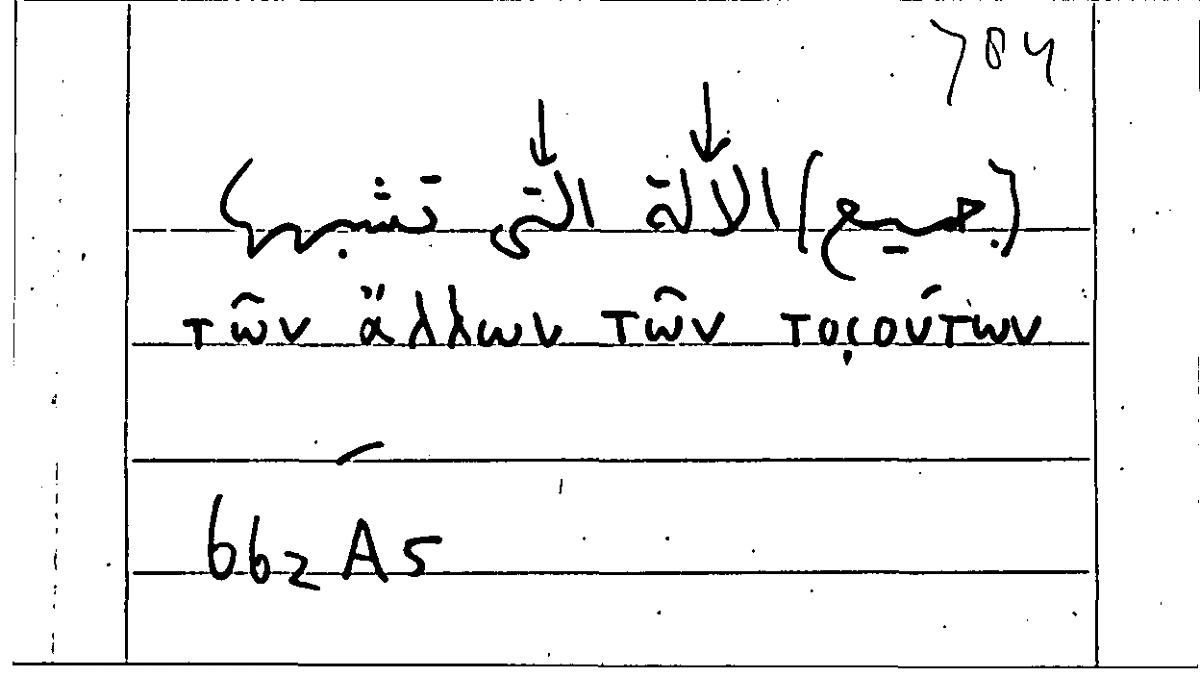 (جميع) الالة التى تشبهها
τῶν ἄλλων τῶν τοςούτων
662A5